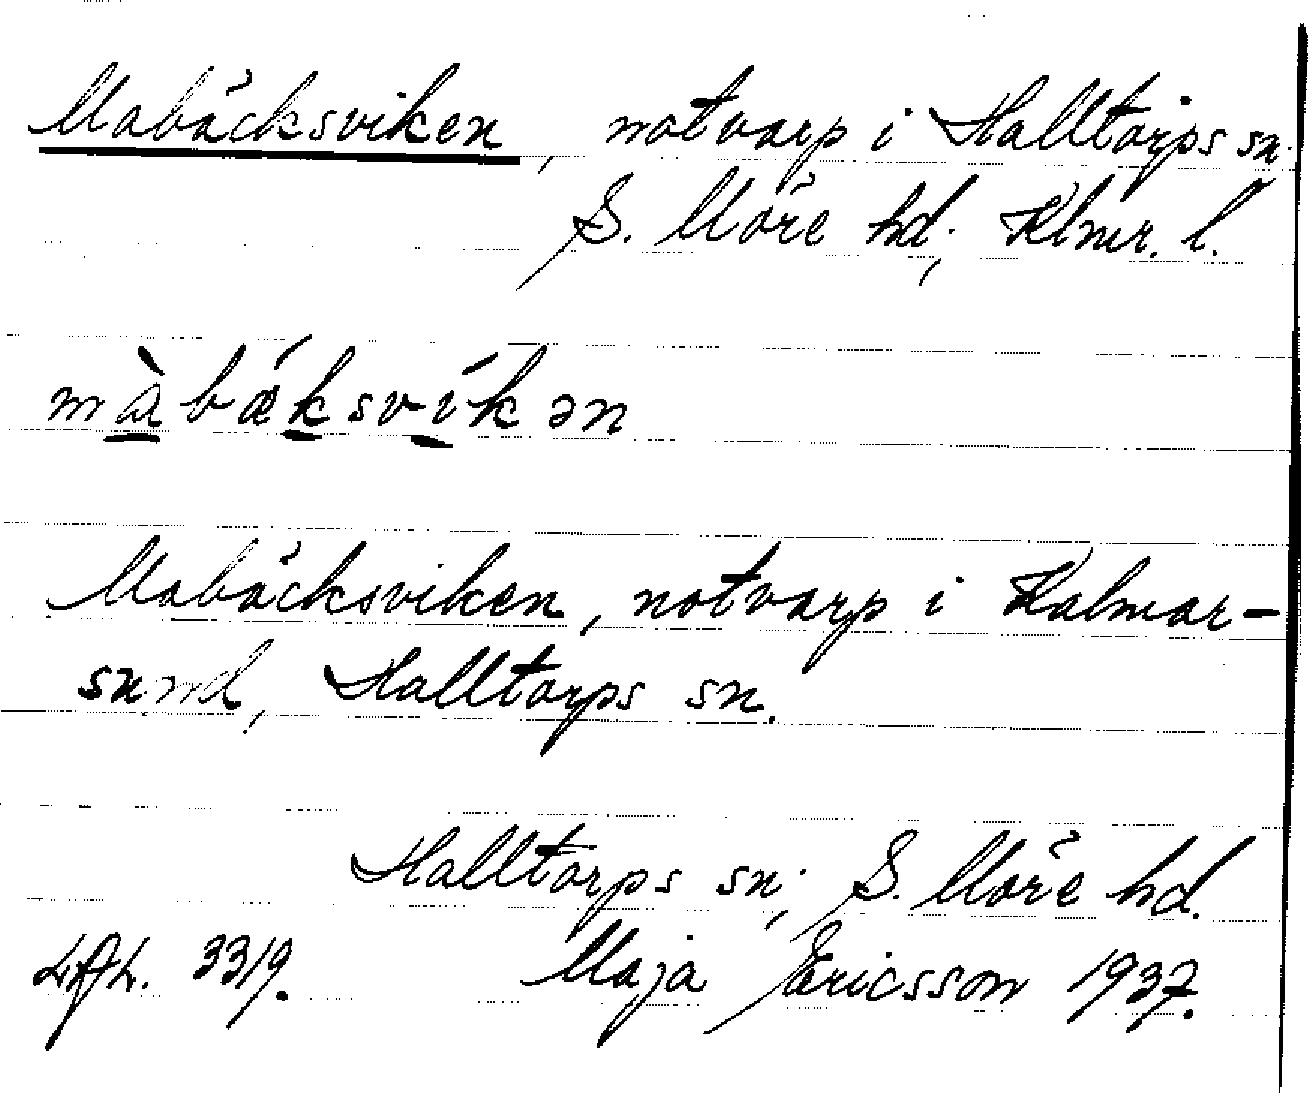 Mabäcksviken, notvarp i Halltorps sn.
S. Möre hd; Klmr. l.
màbǽksvíkən
Mabäcksviken, notvarp i Kalmar-
sund, Halltorps sn.
Halltorps sn; S. Möre hd.
3319. Maja Ericsson 1937.